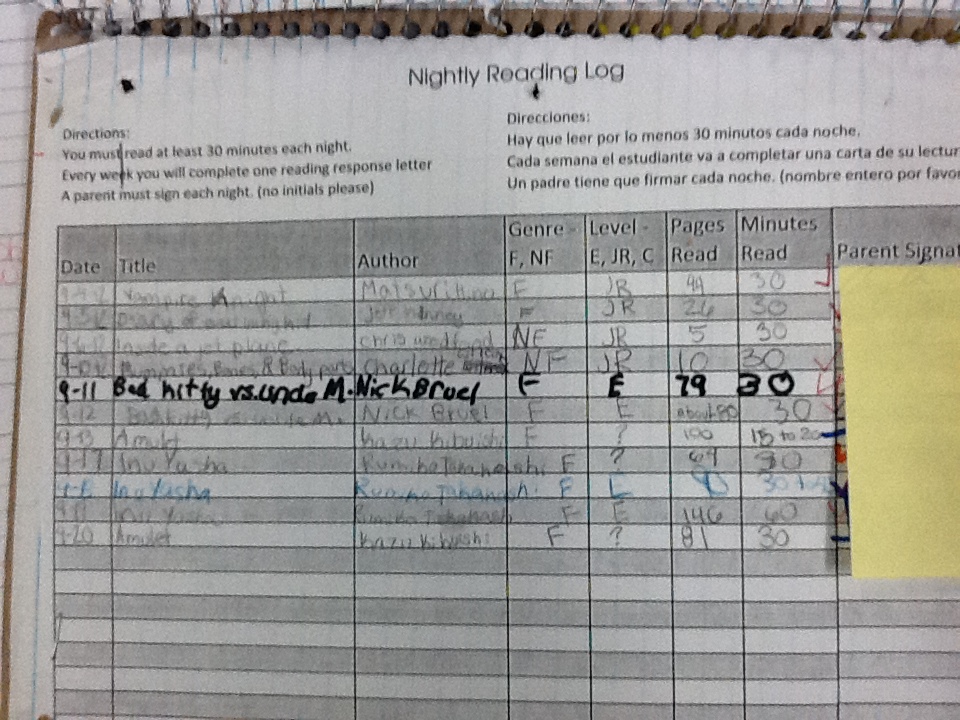 Nightly Reading Log
Directions:
You must read at least 30 minutes each night.
Every week you will complete one reading response letter
A parent must sign each night. (no initials please)
Direcciones:
Hay que leer por lo menos 30 minutos cada noche.
Cada semana el estudiante va a completar una carta de su lectur
Un padre tiene que firmar cada noche. (nombre entero por favor
Date Title Author Genre - F, NF Level - E, JR, C Pages Read Minutes Read Parent Signat
Vampire Knight Matsuri Hino F JR 44 30
Diary of a F JR 26 30
Inside a jet plane Chris NF JR 5 30
Mummies, Bones, & Body parts Charlotte NF JR 10 30
9-11 Bad kitty vs. uncle M. Nick Bruel F E 79 30
9-12 Bad kitty vs uncle M. Nick Bruel F E about 80 30
9-13 Amulet Kazu Kibuishi F ? 100 15 to 20
9-17 Inu Yasha F ? 69 30
Inu Yasha F E 30
Inu Yasha F E 146 60
9-20 Amulet F ? 81 30